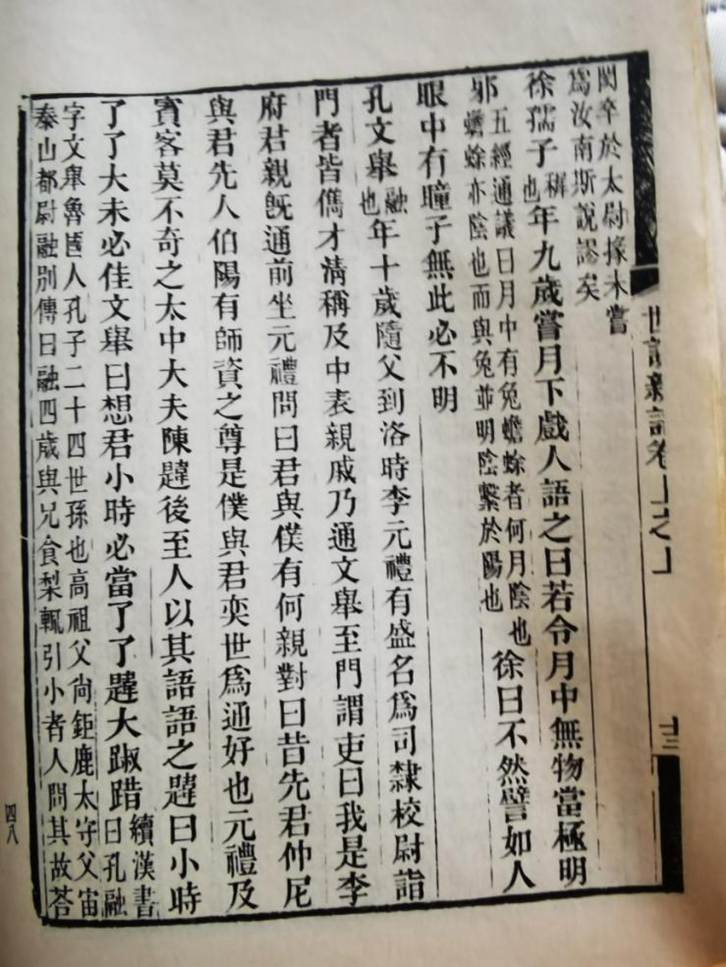 世說新語卷上之上
十三
閎卒於太尉掾未嘗
爲汝南斯說謬矣
徐孺子稺也年九歲嘗月下戲人語之曰若令月中無物當極明
邪五經通議曰月中有兔蟾蜍者何月陰也
蟾蜍亦陰也而與兔並明陰繫於陽也徐曰不然譬如人
眼中有瞳子無此必不明
孔文舉融也年十歲隨父到洛時李元禮有盛名爲司隸校尉詣
門者皆儁才淸稱及中表親戚乃通文舉至門謂吏曰我是李
府君親旣通前坐元禮問曰君與僕有何親對曰昔先君仲尼
與君先人伯陽有師資之尊是僕與君奕世爲通好也元禮及
賓客莫不奇之太中大夫陳韙後至人以其語語之韙曰小時
了了大未必佳文舉曰想君小時必當了了韙大踧踖續漢書
曰孔融
字文舉魯國人孔子二十四世孫也高祖父尙鉅鹿太守父宙
泰山都尉融別傳曰融四歲與兄食梨輒引小者人問其故荅
四八